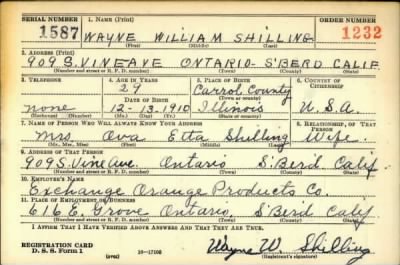 SERIAL NUMBER 1. NAME (Print) ORDER NUMBER
1587 WAYNE WILLIAM SHILLING 1232
(First) (Middle) (Last)
2. ADDRESS (Print)
909 S. VINE AVE ONTARIO - S'BERD CALIF
(Number and street or R. F. D. number) (Town) (County) (State)
3. TELEPHONE 4. AGE IN YEARS 5. PLACE OF BIRTH 6. COUNTRY OF CITIZENSHIP
29 Carrol County
DATE OF BIRTH (Town or county)
none 12-13-1910 Illinois U.S.A.
(Exchange) (Number) (Mo.) (Day) (Yr.) (State or country)
7. NAME OF PERSON WHO WILL ALWAYS KNOW YOUR ADDRESS 8. RELATIONSHIP OF THAT PERSON
Mrs Ova Etta Shilling Wife
(Mr., Mrs., Miss) (First) (Middle) (Last)
9. ADDRESS OF THAT PERSON
909 S. Vine Ave. Ontario S'Berd Calif
(Number and street or R. F. D. number) (Town) (County) (State)
10. EMPLOYER'S NAME
Exchange Orange Products Co.
11. PLACE OF EMPLOYMENT OR BUSINESS
616 E. Grove Ontario, S'Berd Calif
(Number and street or R. F. D. number) (Town) (County) (State)
I AFFIRM THAT I HAVE VERIFIED ABOVE ANSWERS AND THAT THEY ARE TRUE.
REGISTRATION CARD
D. S. S. Form 1 16-17105 Wayne W. Shilling
(over) (Registrant's signature)